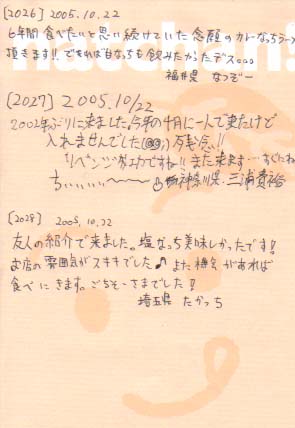 [2026] 2005.10.22
6年間食べたいと思い続けていた念願のカトなっちラーメン
頂きます!! できれば自なっちも飲みたかったデス。。。
福井県 なつぞー
[2027] 2005.10/22
2002年ぶりに来ました。今年の十月に一人で来たけど
入れませんでした(@@;)残念!!
リベンジ 成功ですね!! また来ます…すぐにね
神奈川県 三浦貴裕
[2028] 2005.10.22
友人の紹介で来ました。塩なっち美味しかったです!
お店の雰囲気がスキでした♪ また機会があれば
食べにきます。ごちそーさまでした!!
埼玉県 たかっち